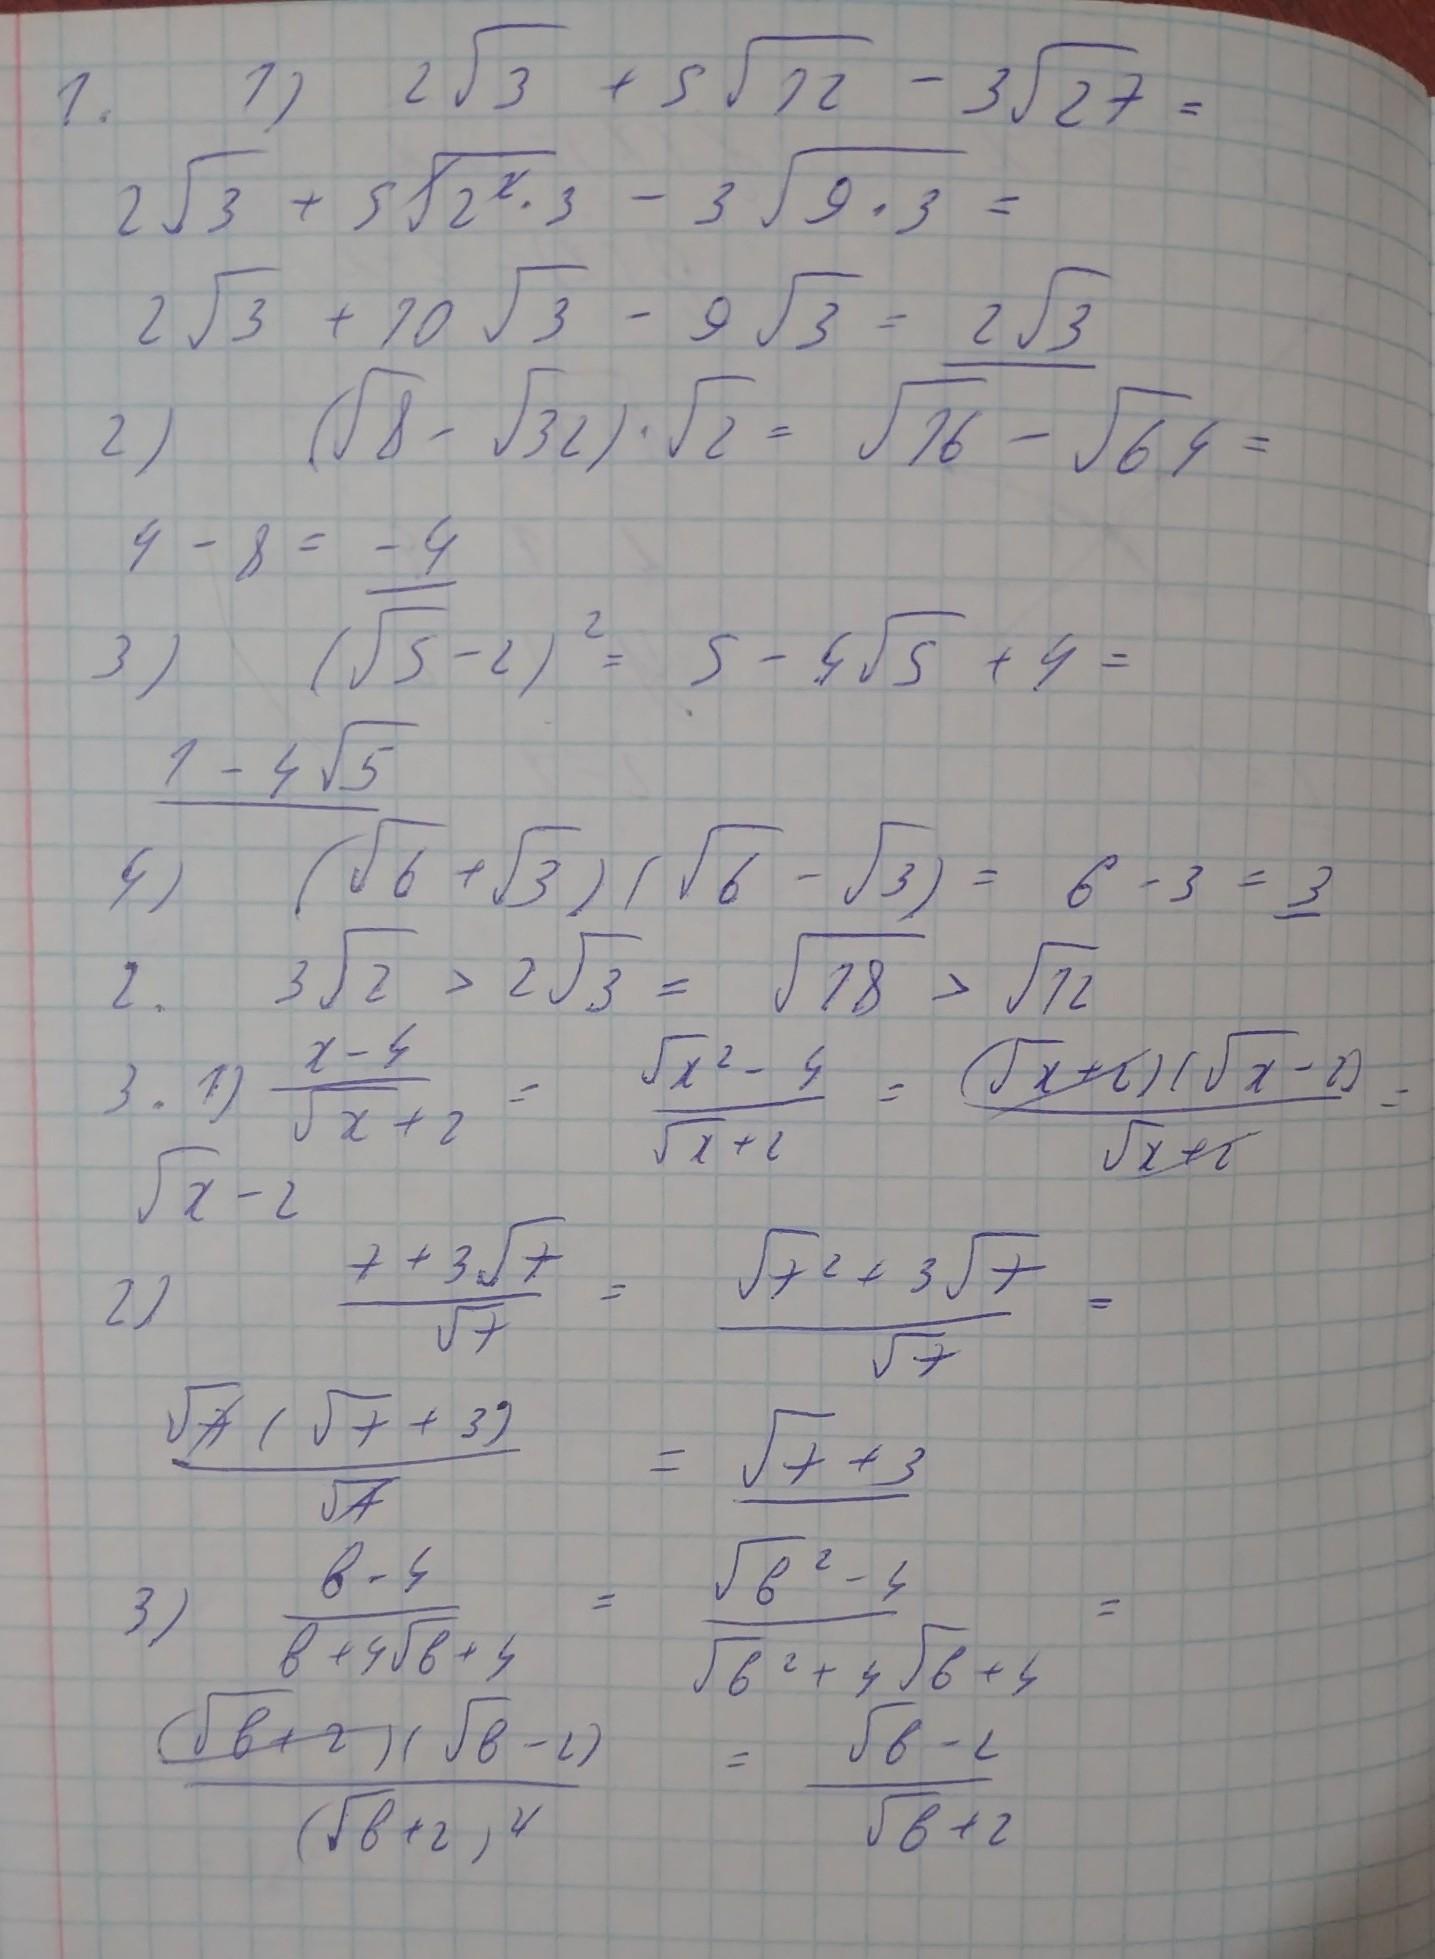 1. 1) 2√3 + 5√12 - 3√27 =
2√3 + 5√(2²·3) - 3√(9·3) =
2√3 + 10√3 - 9√3 = 2√3
2) (√8 - √32)·√2 = √16 - √64 =
4 - 8 = -4
3) (√5 - 2)² = 5 - 4√5 + 4 =
1 - 4√5
4) (√6 + √3)(√6 - √3) = 6 - 3 = 3
2. 3√2 > 2√3 = √18 > √12
3. 1) (x-4)/(√x+2) = (√x²-4)/(√x+2) = ((√x+2)(√x-2))/(√x+2) =
√x - 2
2) (7+3√7)/√7 = (√7²+3√7)/√7 =
(√7(√7+3))/√7 = √7+3
3) (в-4)/(в+4√в+4) = (√в²-4)/(√в²+4√в+4) =
((√в+2)(√в-2))/(√в+2)² = (√в-2)/(√в+2)